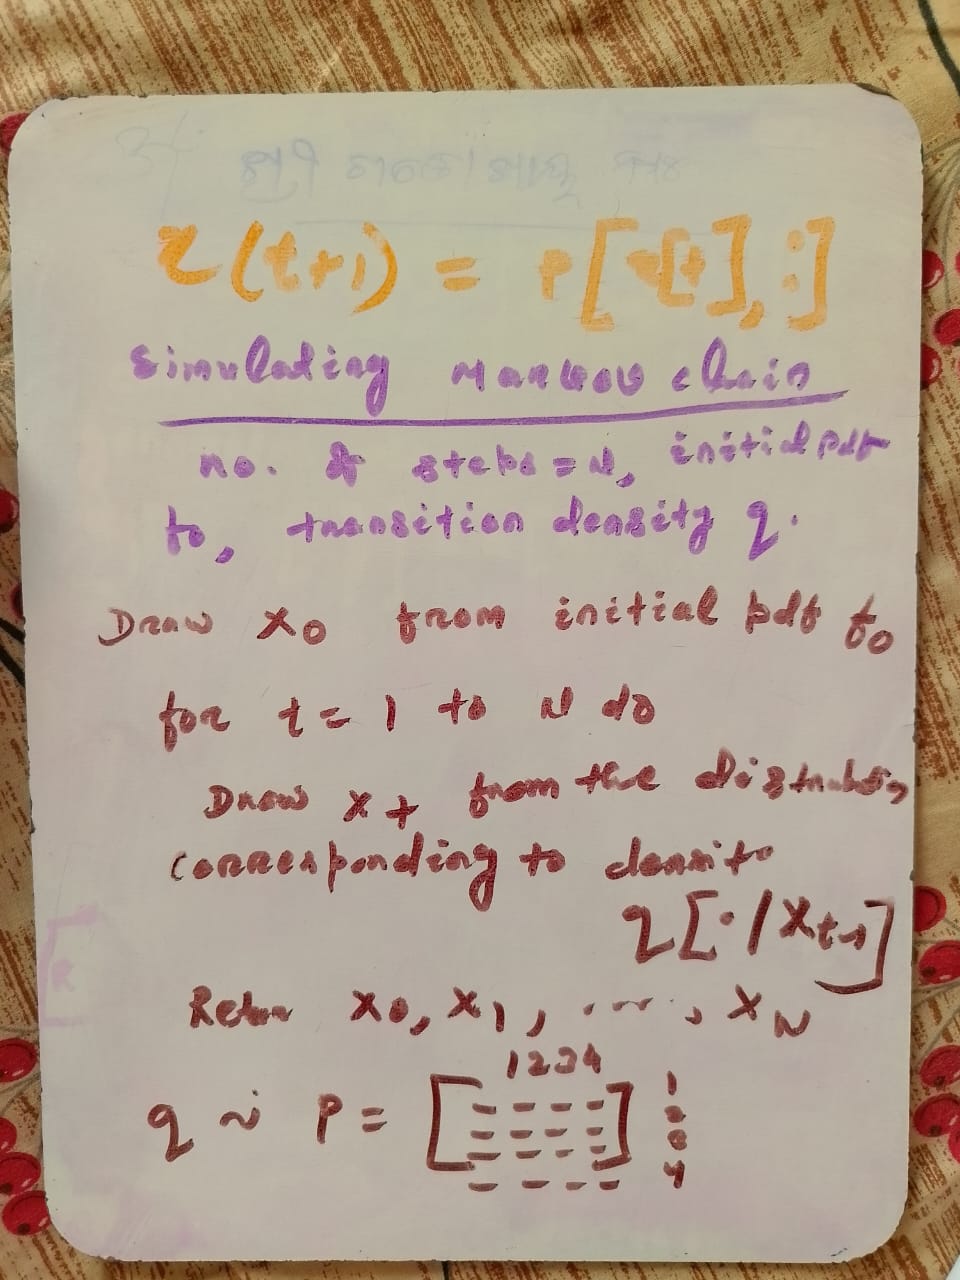 x(t+1) = P[x[t], :]
Simulating Markov chain
no. of steps = N, initial pdf
fo, transition density q.
Draw X0 from initial pdf fo
for t = 1 to N do
Draw Xt from the distribution
corresponding to density
q[. | Xt-1]
Return X0, X1, ...., XN
1 2 3 4
q ~ P = [ ] 1
2
3
4